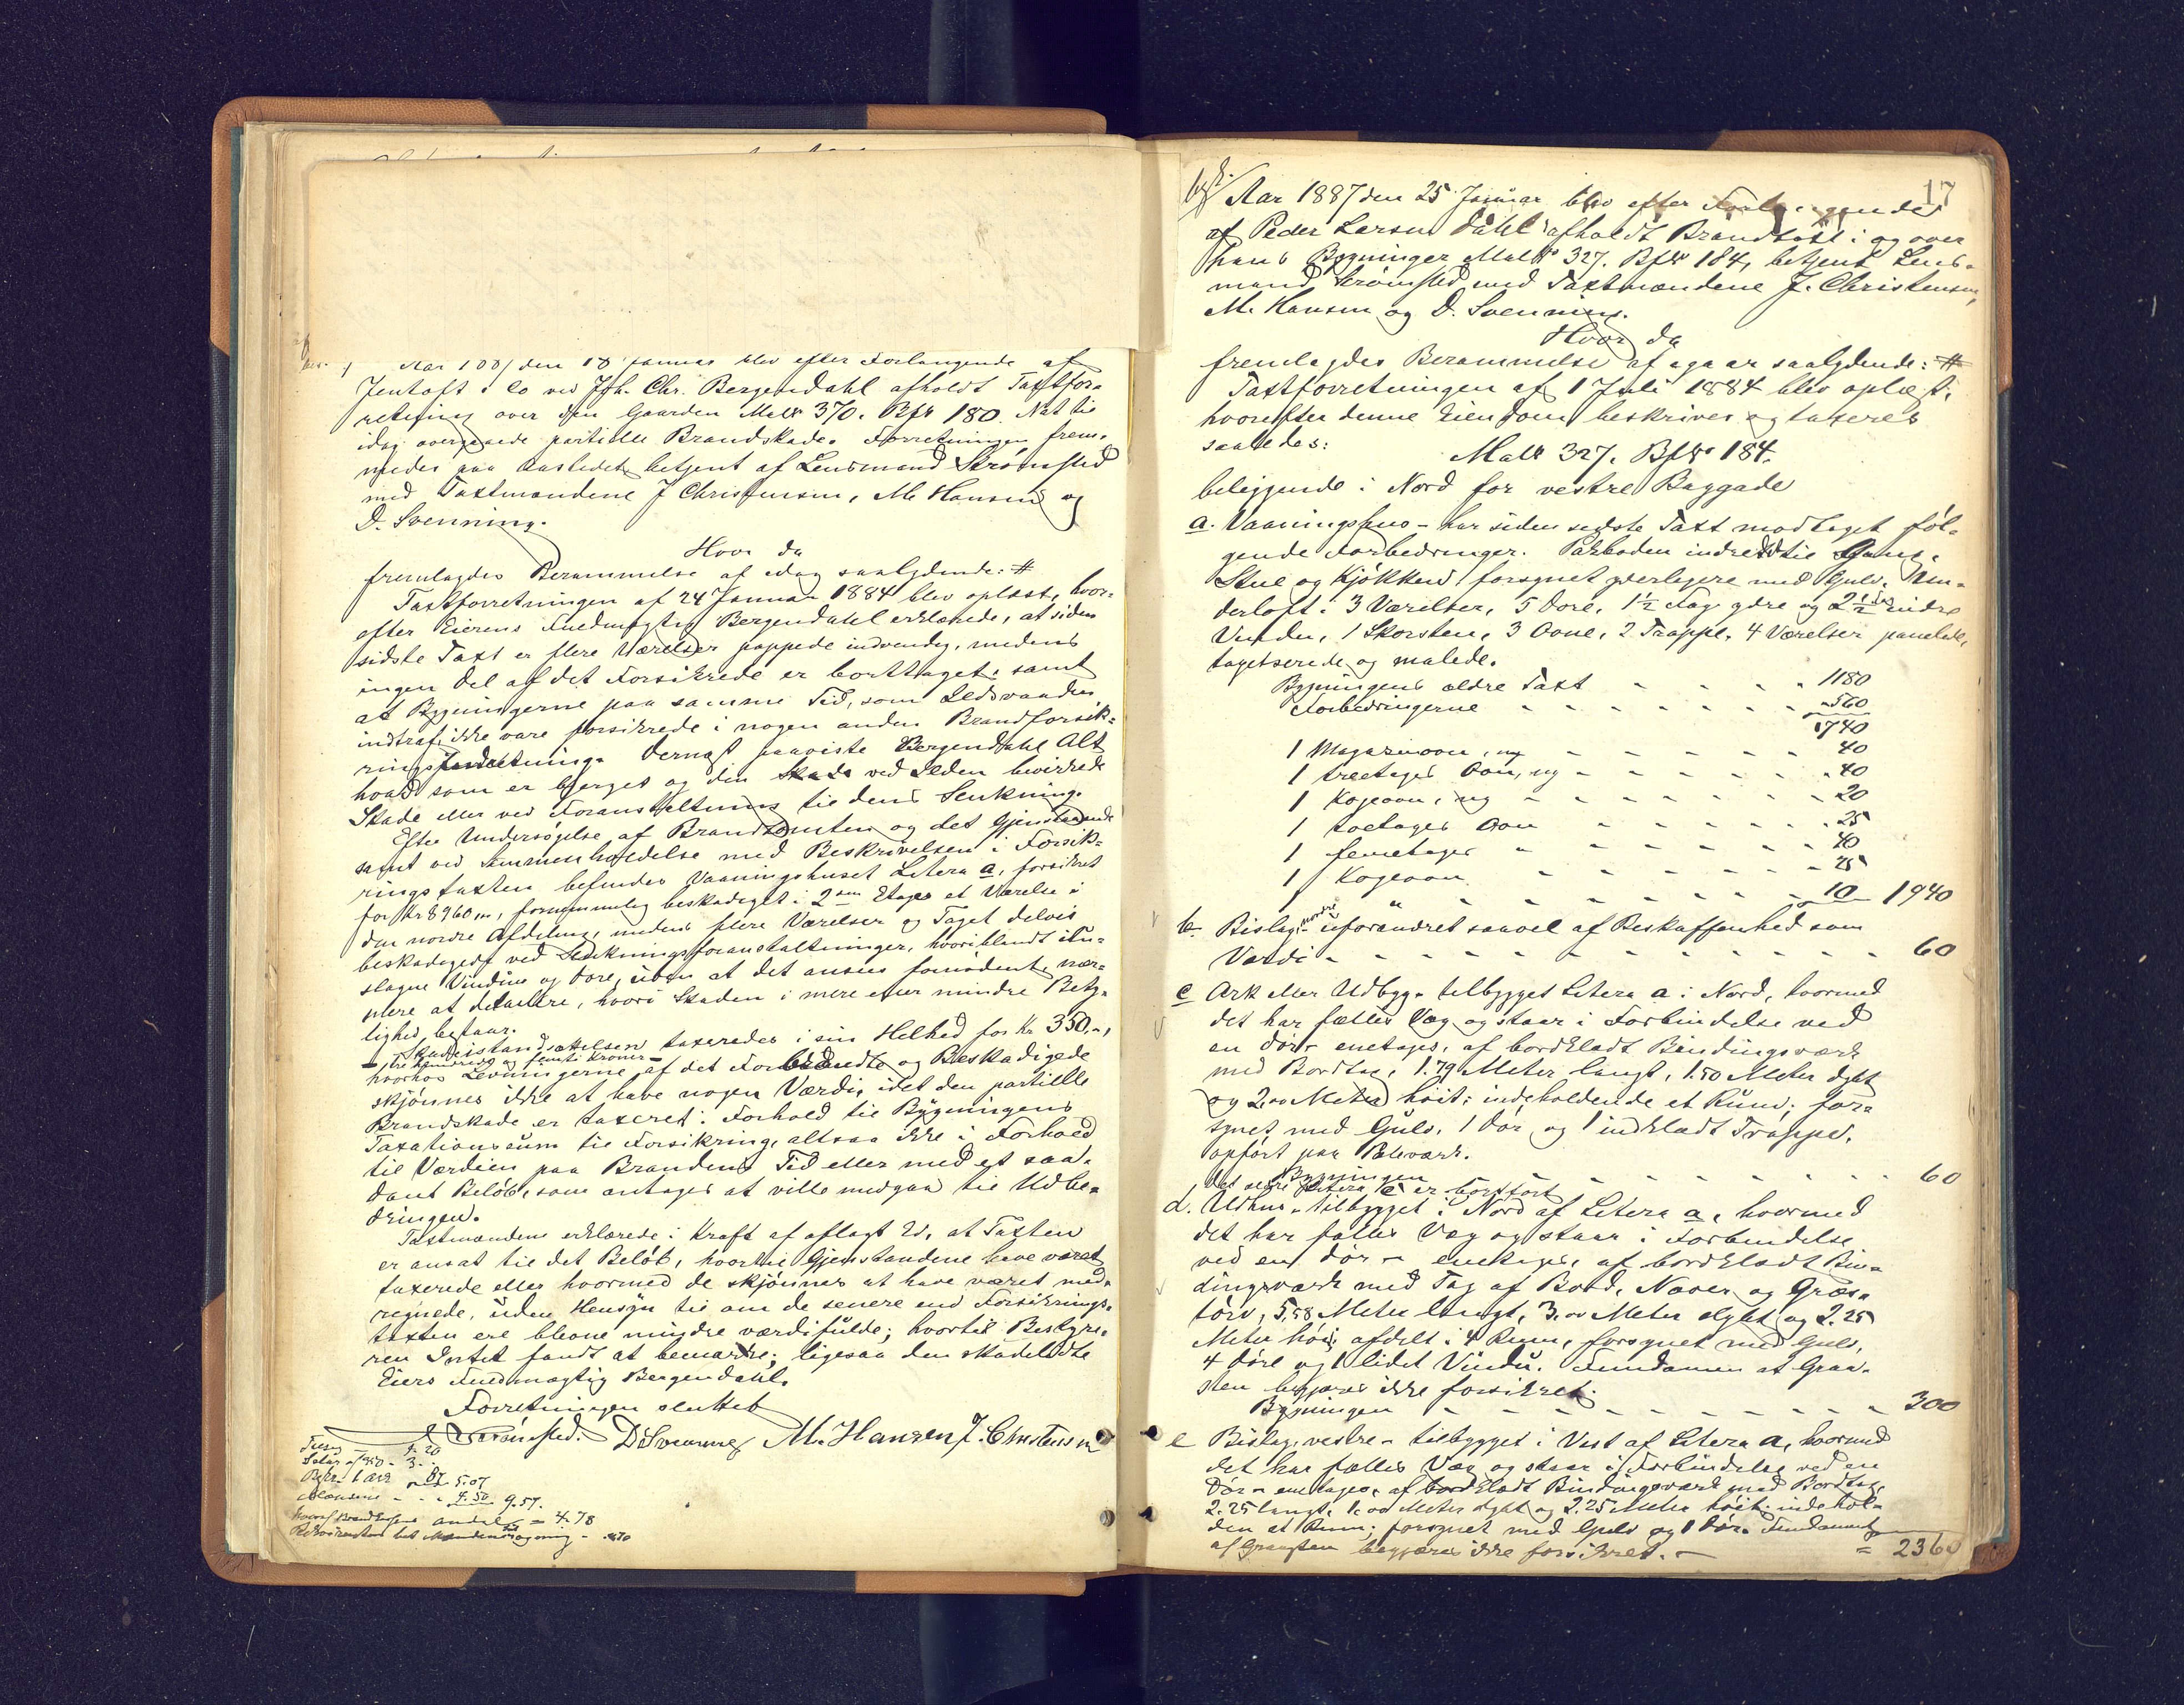 Aar 1887 den 18 Januar blev efter Forlangende af
Jentoft & Co ved Joh. Chr. Bergendahl afholdt Taxtfor-
retning over den Gaarden Mat№ 370. Bf№ 180. Nat til
idag overgaaede partielle Brandskade. Forretningen frem-
medes paa Aastedet betjent af Lensmand Strømsted
med Taxtmændene J Christensen, M. Hansen og
D. Svenning.
Hvor da
fremlagdes Berammelse af idag saalydende: #
Taxtforretningen af 24 Januar 1884 blev oplæst, hvor-
efter Eierens Fuldmægtig Bergendahl erklærede, at siden
sidste Taxt er flere Værelser pappede indvendig, medens
ingen Del af det Forsikrede er borttaget; samt
at Bygningerne paa samme Tid, som Ildsvaaden
indtraf, ikke vare forsikrede i nogen anden Brandforsik-
ringsindretning. Dernæst paaviste Bergendahl Alt
hvad som er bjerget og den Skade ved Ilden bevirkede
Skade eller ved Foranstaltning til dens Slukning.
Efter Undersøgelse af Brandtomten og det Gjenstaaende
samt ved Sammenholdelse med Beskrivelsen i Forsik-
ringstaxten befindes Vaaningshuset Litera a, forsikret
for Kr 8960,00, fornemmelig beskadiget i 2den Etage et Værelse i
den nordre Afdeling, medens flere Værelser og Taget delvis
beskadiget ved Slukningsforanstaltninger, hvoriblandt itu-
slagne Vinduer og Døre, uden at det ansees fornødent nær-
mere at detaillere, hvori Skaden i mere eller mindre Bety-
lighed bestaar.
Istandsættelsen taxeredes i sin Helhed for Kr 350,-,
- tre hundrede og femti Kroner -
hvorhos Levningerne af det Forbrændte og Beskadigede
skjønnes ikke at have nogen Værdi, idet den partielle
Brandskade er taxeret i Forhold til Bygningens
Taxationssum til Forsikring, altsaa ikke i Forhold
til Værdien paa Brandens Tid eller med et saa-
dant Beløb, som antages at ville medgaa til Udbe-
dringen.
Taxtmændene erklærede i Kraft af aflagt Ed, at Taxten
er ansat til det Beløb, hvortil Gjenstandene have været
taxerede eller hvormed de skjønnes at have været med-
regnede, uden Hensyn til om de senere end Forsikrings-
taxten ere blevne mindre værdifulde; hvortil Bestyre-
ren Intet fandt at bemærke; ligesaa den skadelidte
Eiers Fuldmægtig Bergendahl.
Forretningen sluttet
Strømsted. D Svenning M. Hansen J. Christensen
4.20
3.
87 5.07
4.50 9.57.
Andel = 4.78
17
Aar 1887 den 25 Januar blev efter Forlangende
af Peder Larsen Dahl afholdt Brandtaxt i og over
hans Bygninger Mat№ 327. Bf№ 184, betjent Lens-
mand Strømsted med Taxtmændene J. Christensen,
M. Hansen og D. Svenning.
Hvor da
fremlagdes Berammelse af 29a ar saalydende: #
Taxtforretningen af 1 Juli 1884 blev oplæst,
hvorefter denne Eiendom beskrives og taxeres
saaledes:
Mat№ 327. Bf№ 184.
beliggende i Nord for vestre Baggade
a. Vaaningshus - har siden sidste Taxt modtaget føl-
gende Forbedringer. Pakboden indredet til Gang,
Stue og Kjøkken forsynet yderligere med Gulv, Un-
derloft i 3 Værelser, 5 Døre, 1½ Fag ydre og 2½ Fag indre
Vinduer, 1 Skorsten, 3 Ovne, 2 Trapper, 4 Værelser panelede,
tapetserede og malede.
Bygningens ældre Taxt - - - - 1180
Forbedringerne - - - - - - 560
1740
1 Magasinovn, ny - - - - - 40
1 treetages Ovn, ny - - - - - 40
1 Kogeovn, ny - - - - - - 20
1 toetages Ovn - - - - - 25
1 femetages " - - - - - 40
1 Kogeovn - - - - - 25
1 " - - - - - 10 - 1940
b. Bislag, nordre - uforandret saavel af Beskaffenhed som
Værdi - - - - - - - - - - 60
c Ark eller Udbygg. tilbygget Litera a i Nord, hvormed
det har fælles Væg og staar i Forbindelse ved
en Dør - enetages, af bordklædt Bindingsværk
med Bordtag, 1.79 Meter langt, 1.50 Meter dybt
og 2.00 Meter høit; indeholdende et Rum; for-
synet med Gulv, 1 Dør og 1 indklædt Trappe,
opført paa Pæleværk.
Bygningen - - - - - - - - 60
Det ældre Litera c er bortført
d. Udhus - tilbygget i Nord af Litera a, hvormed
det har fælles Væg og staar i Forbindelse
ved en Dør - enetages, af bordklædt Bin-
dingsværk med Tag af Bord, Næver og Græs-
tørv, 5.58 Meter langt, 3.00 Meter dybt og 2.25
Meter høit, afdelt i 4 Rum, forsynet med Gulv,
4 Døre og 1 lidet Vindu. Fundamen at Graa-
sten begjæres ikke forsikret.
Bygningen - - - - - - - - 300
e Bislag, vestre - tilbygget i Vest af Litera a, hvormed
det har fælles Væg og staar i Forbindelse ved en
Dør - enetages, af bordklædt Bindingsværk med Bordtag,
2.25 langt, 1.00 Meter dybt og 2.25 Meter høit; indehol-
den et Rum; forsynet med Gulv og 1 Dør. Fundament
af Graasten begjæres ikke forsikret. - = 2360